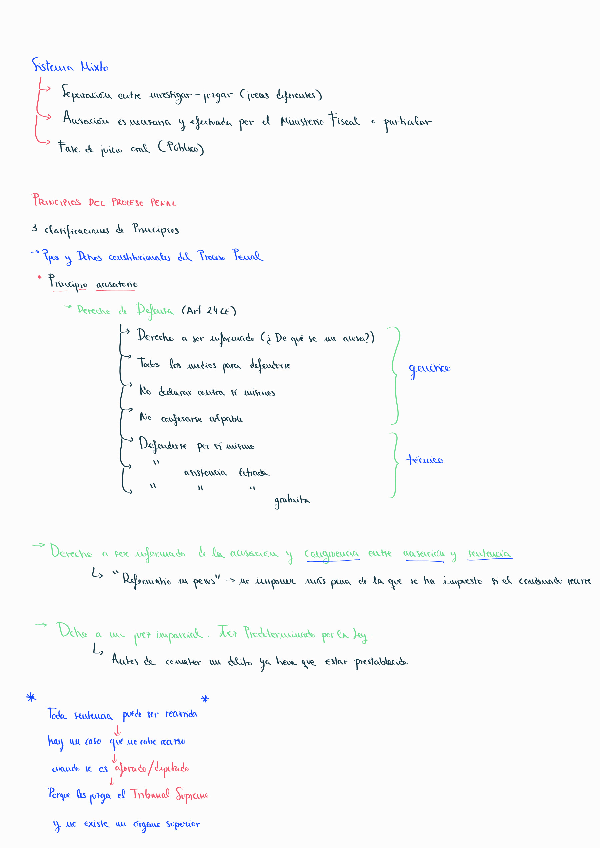 Sistema Mixto
Separación entre investigar - juzgar (jueces diferentes)
Acusación es necesaria y efectuada por el Ministerio Fiscal o particular
Fase de juicio oral (Público)
PRINCIPIOS DEL PROCESO PENAL
3 clasificaciones de Principios
Ppos y Dchos constitucionales del Proceso Penal
* Principio acusatorio
Derecho de Defensa (Art 24 CE)
Derecho a ser informado (¿De qué se me acusa?)
Todos los medios para defenderse
No declarar contra sí mismos
No confesarse culpable
genérica
Defenderse por sí mismo
" asistencia letrada
" " " gratuita
técnica
→ Derecho a ser informado de la acusación y congruencia entre acusación y sentencia
"Reformatio in peius" → no imponer más pena de la que se ha impuesto si el condenado recurre
→ Dcho a un juez imparcial. Ju Predeterminado por la Ley
Antes de cometer un delito ya tiene que estar preestablecido.
* *
Toda sentencia puede ser recurrida
hay un caso que no cabe recurso
cuando se es aforado/diputado
Porque los juzga el Tribunal Supremo
y no existe un órgano superior